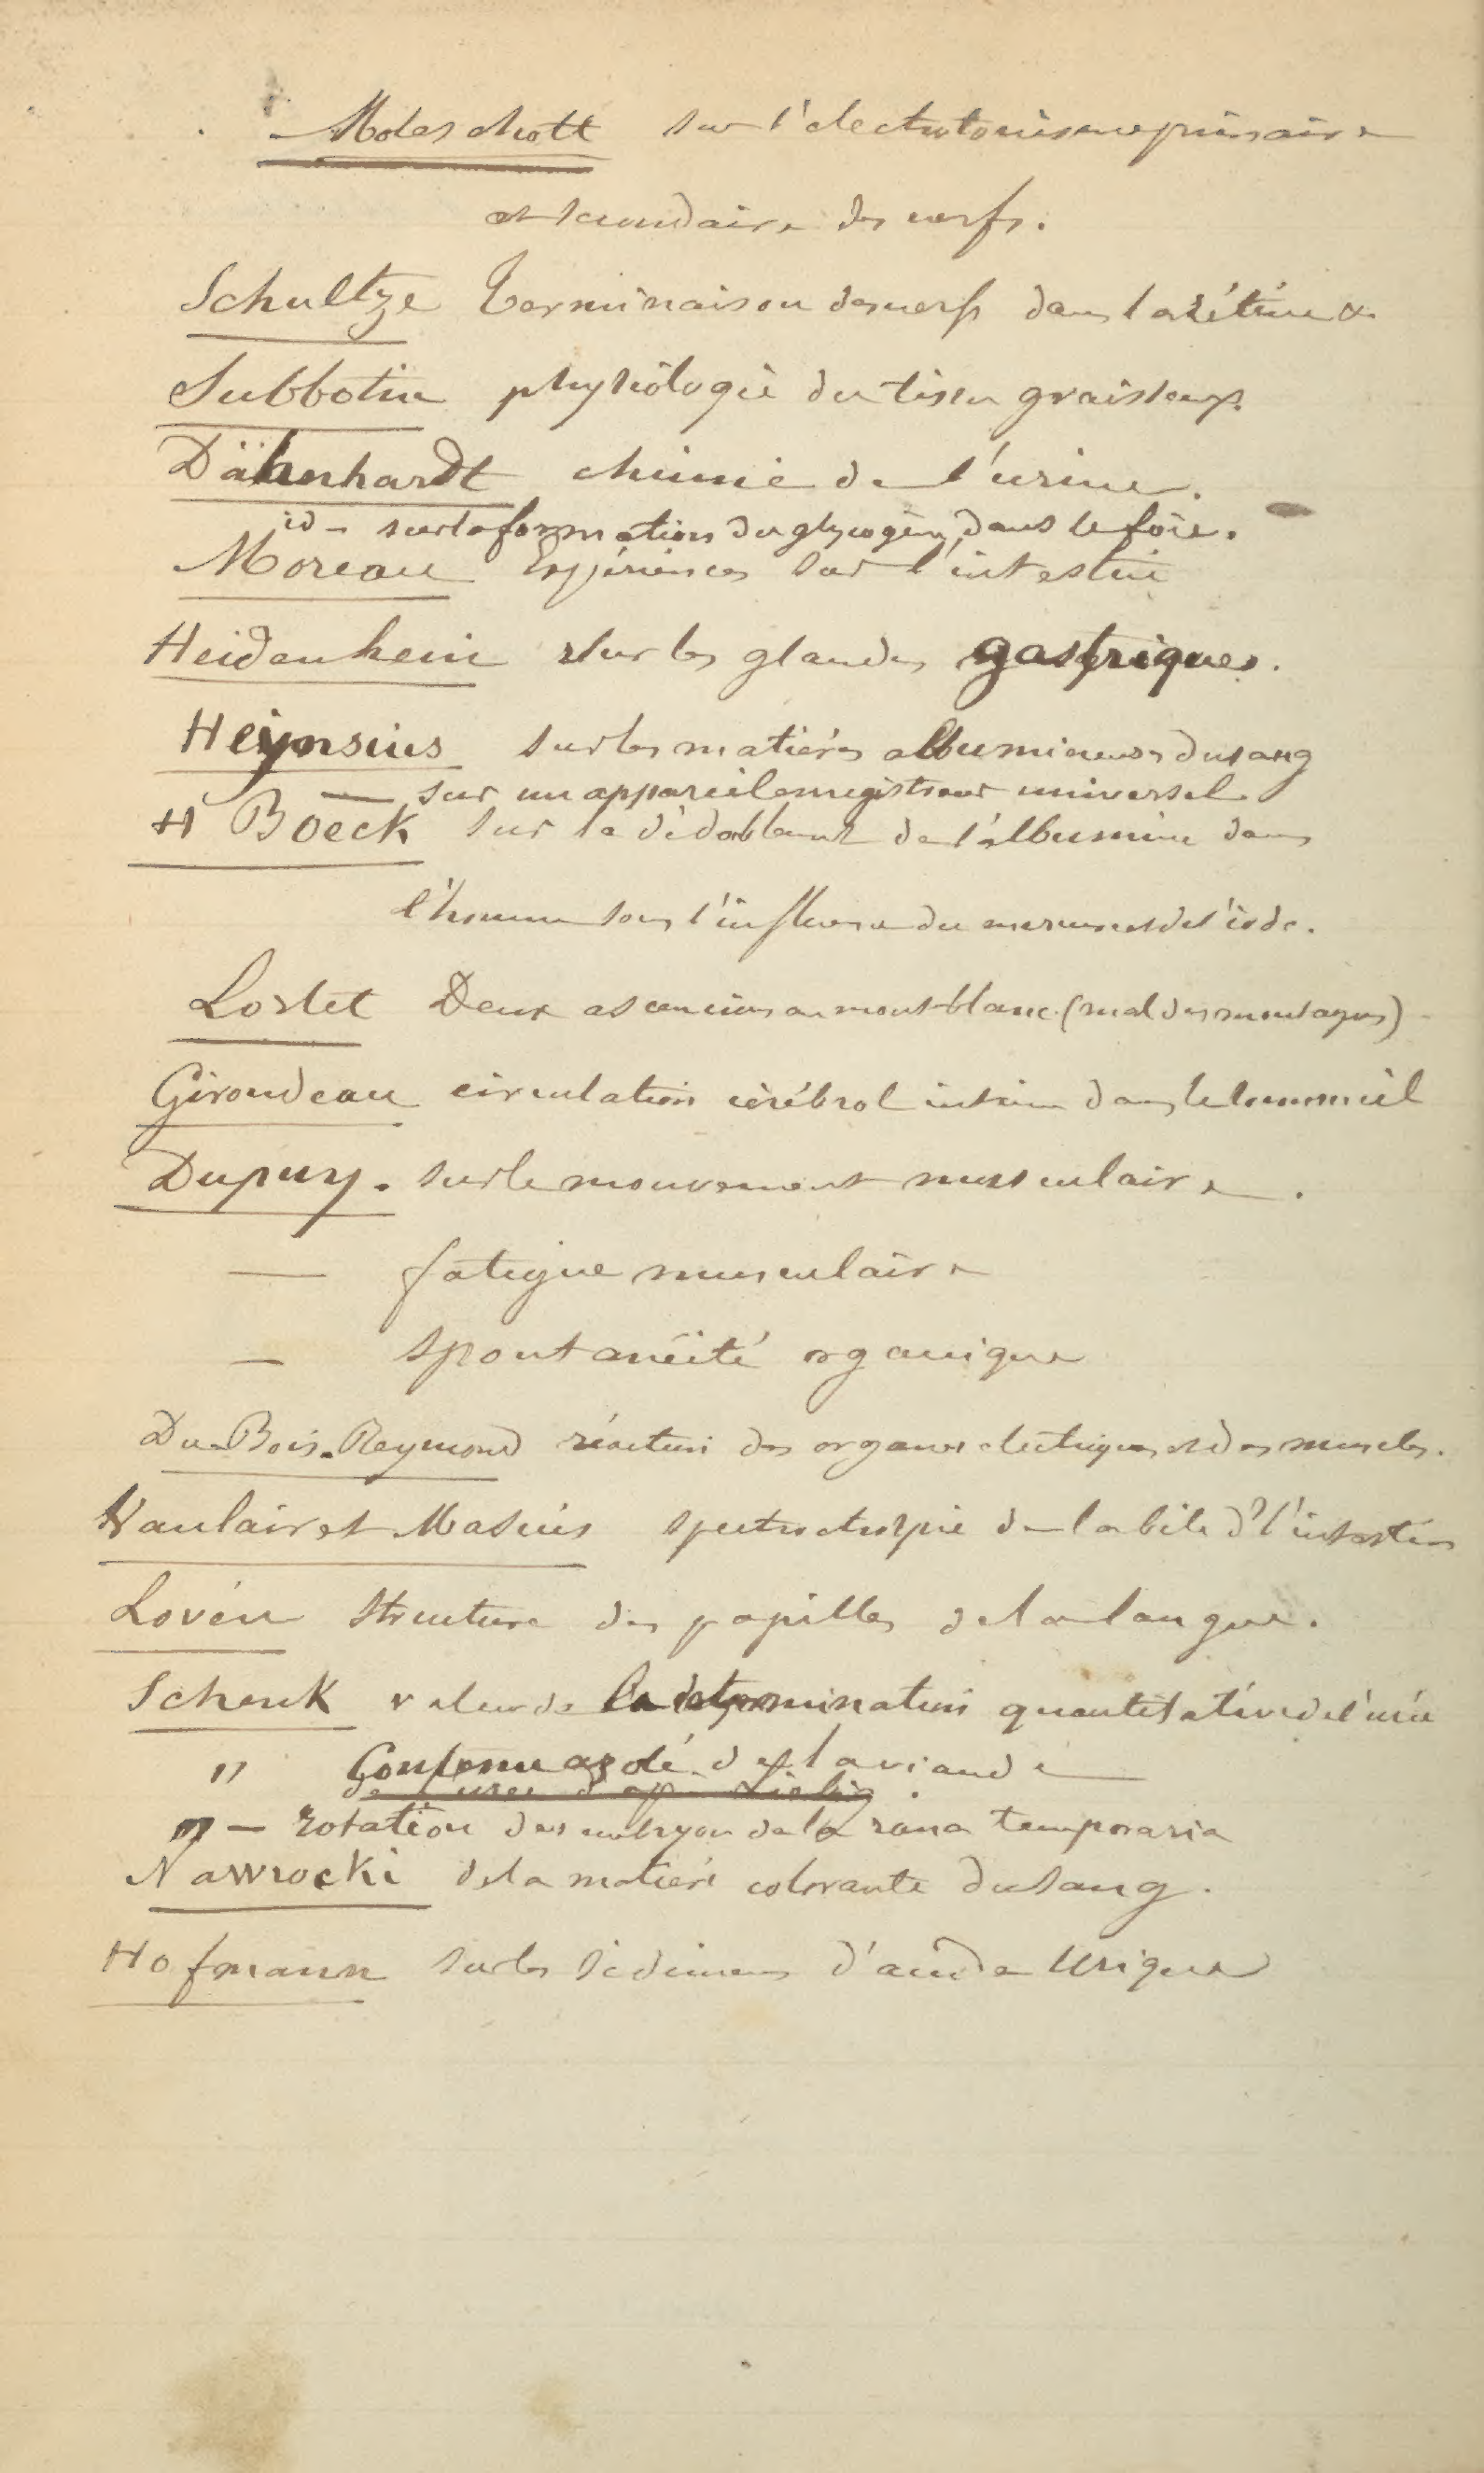 Moleschott sur l'electrotonisme primaire
et secondaire des nerfs.
Schultze Terminaison des nerfs dans la rétine &
Subbotin physiologie du tissu graisseux.
Dähnhardt chimie de l'urine.
id – sur la formation du glycogène dans le foie.
Moreau Expériences sur l'intestin
Heidenhein sur les glandes gastriques.
Heynsius sur les matières albumineuses du sang
— sur un appareil enregistreur universel
H Boeck sur le dédoublemt de l'albumine dans
l'homme sous l'influence du mercure et de l'iode.
Lortet Deux ascencions au mont-blanc (mal des montagnes)
Girondeau circulation cérébral intime dans le sommeil
Dupuy. sur le mouvement musculaire.
— fatigue musculaire
— spontanéité organique
Du-Bois-Reymond réaction des organes electriques et des muscles.
Vanlair et Masius spectroscopie de la bile d l'intestin
Lovén structure des papilles de la langue.
Schenk valeur de la determination quantitative de l'urée
" Contenu azoté de la viande
de d'ap. Liebig.
" – rotation des embryon de la rana temporaria
Nawrocki de la matière colorante du sang.
Hofmann sur les sédimens d'acide Urique